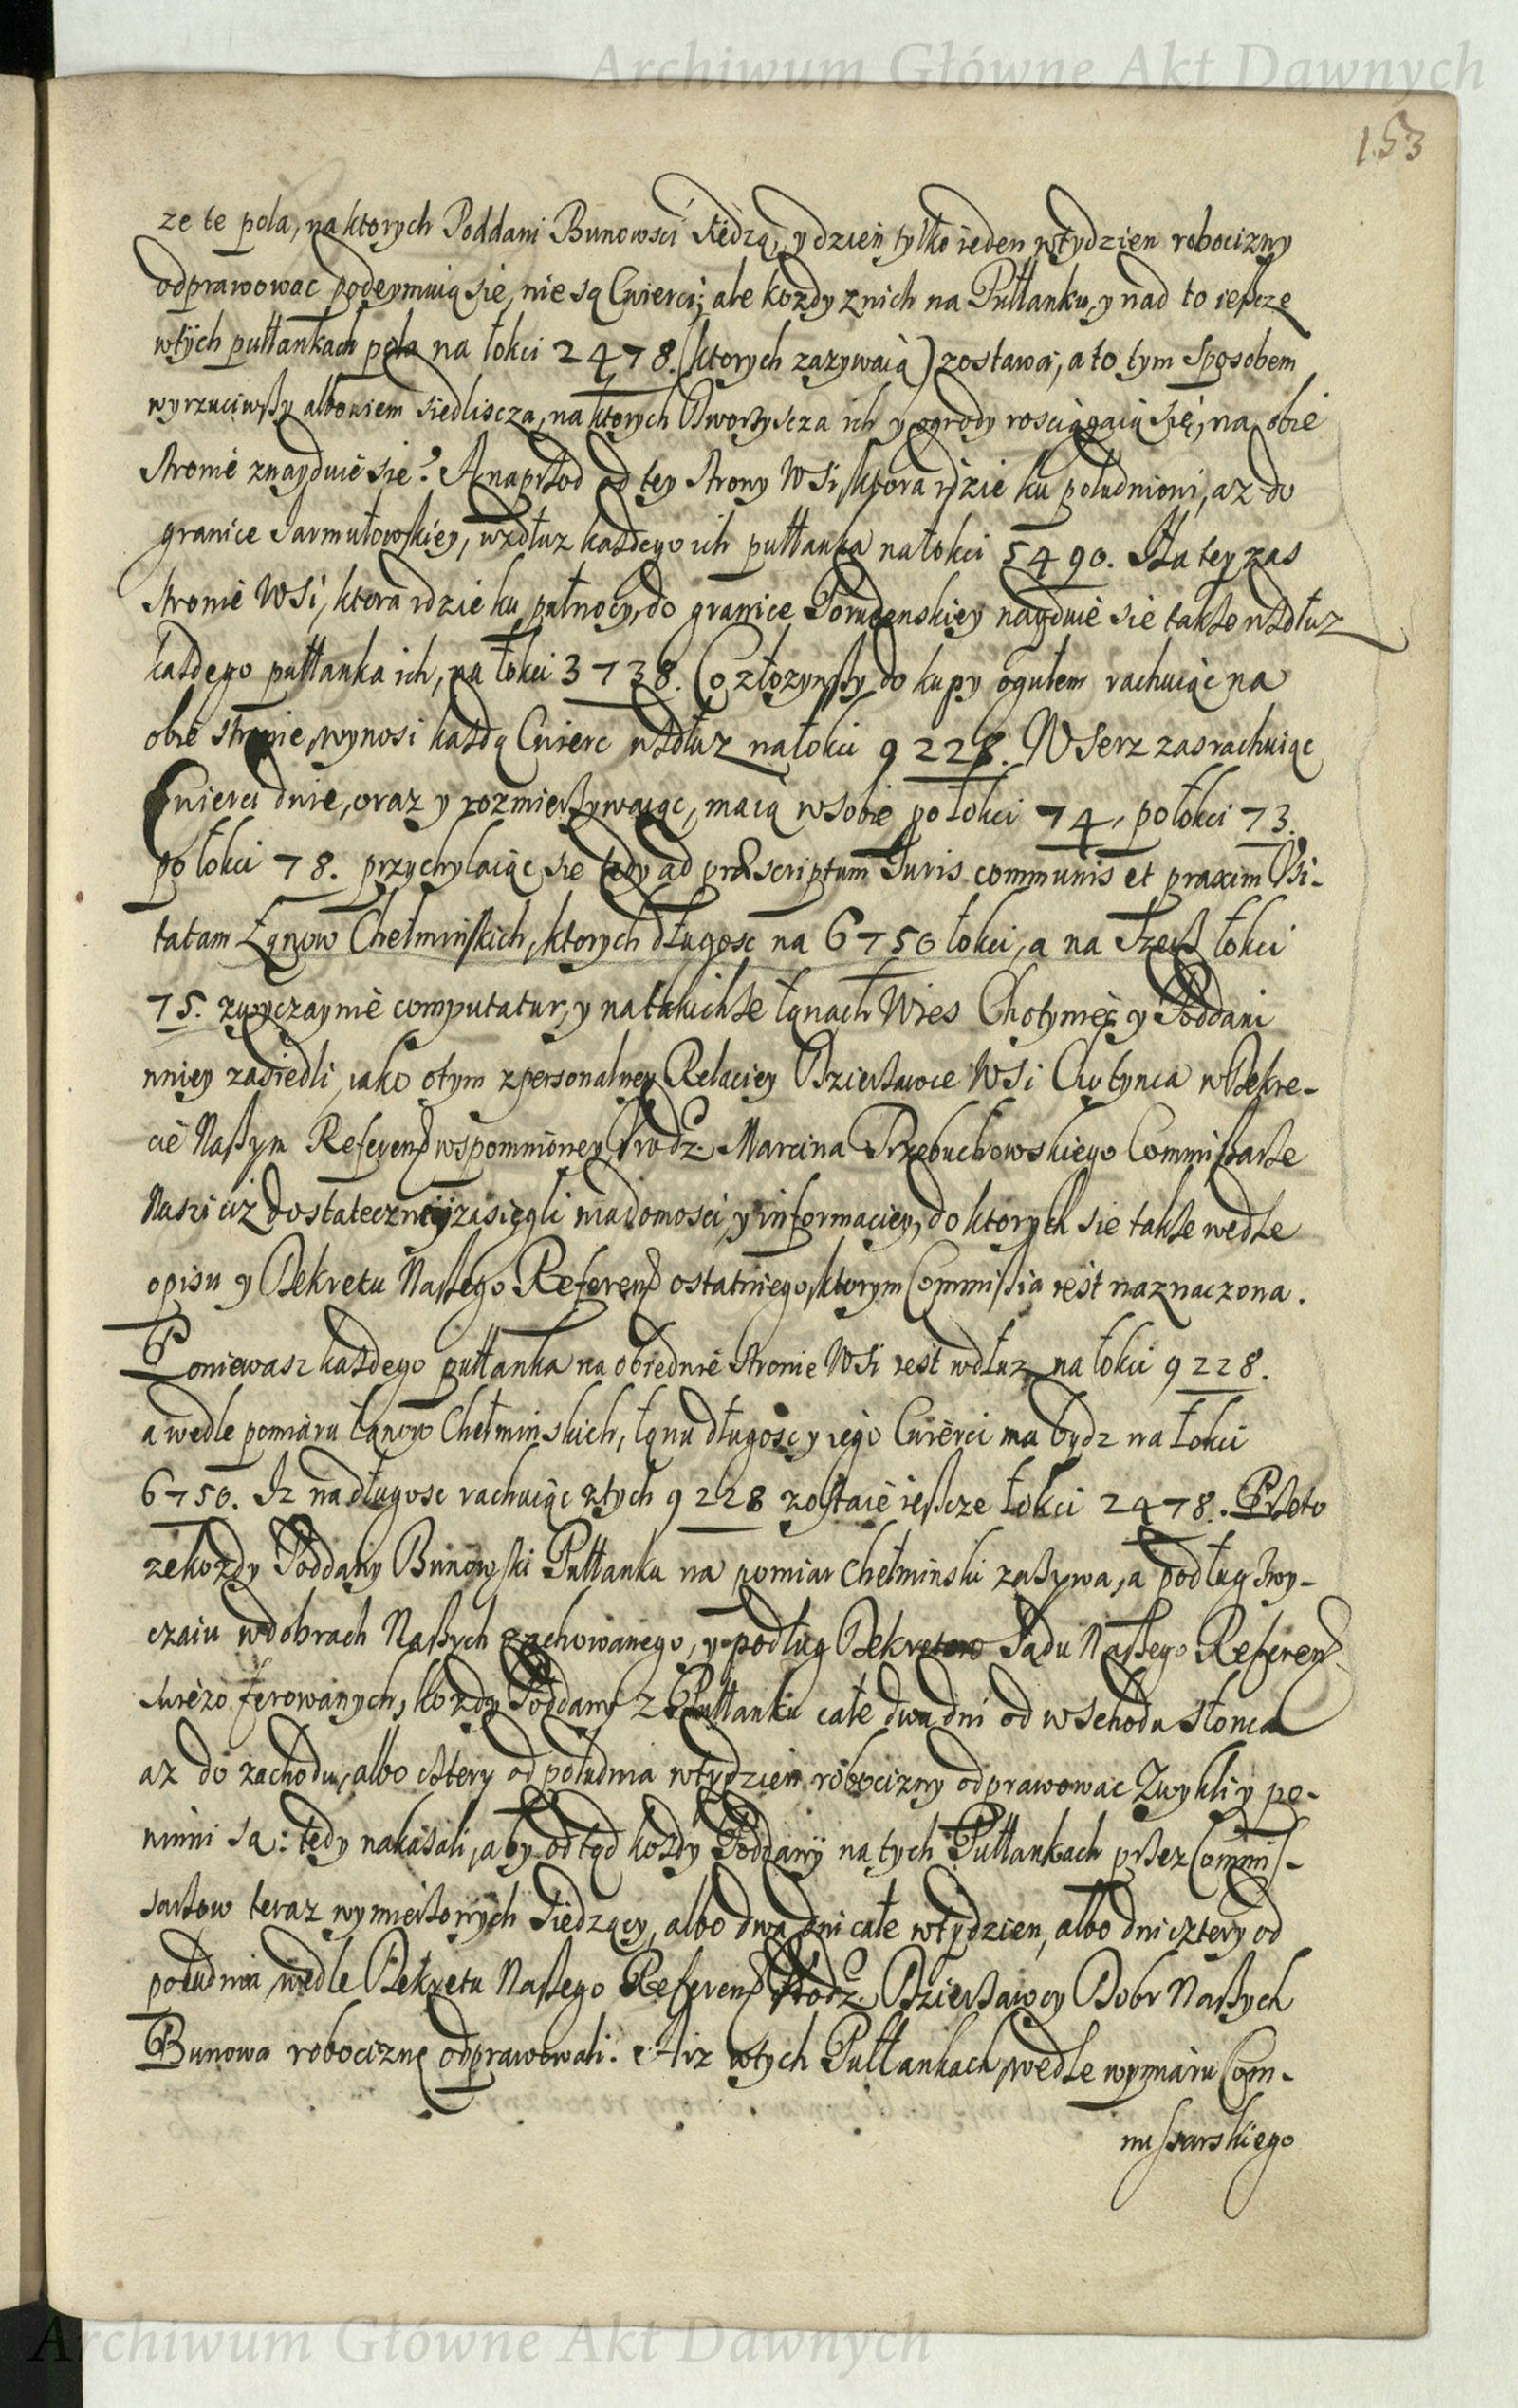 Archiwum Główne Akt Dawnych
153
ze te pola, na ktorych Poddani Bunowsci siedzą, y dzien tylko ieden wtydzien robocizny
odprawowac podeymuią sie, nie są Cwierci; ale kozdy znich na Pułłanku, y nad to iescze
wtych pułłankach pola na łokci 2478. (ktorych zazywaią) zostawa, a to tym sposobem
wyrzuciwszy albowiem siedliscza, na ktorych Dworzyscza ich y ogrody rosciągaią się, na obie
stronie znayduie sie? A naprzod od tey strony WSi, ktora idzie ku południowi, az do
granice Sarmułowskiey, wzdłuz kazdego ich pułłanka na łokci 5490. Na tey zas
stronie WSi, ktora idzie ku pałnocy, do granice Porudenskiey nayduie sie takze wzdłuz
kazdego pułłanka ich, na łokci 3738. Co złozywszy do kupy ogułem rachuiąc na
obie stronie, wynosi kazda Cwierc wzdłuz na łokci 9228. WSerz zas rachuiąc
Cwierci dwie, oraz y rozmierzywaiąc, maią wsobie po łokci 74, po łokci 73.
po łokci 78. przychylaiąc sie tedy ad præscriptum Iuris communis et praxim Vsi-
tatam Łąnow Chełminskich, ktorych długosc na 6750 łokci, a na Szerz łokci
75. zwyczaynie computatur, y na takichze łąnach Wies Chotyniec y Poddani
wniey zasiedli, iako otym zpersonalney Relaciey Dzierzawce WSi Chotynca wDekre-
cie Naszym Referend wspomnioney Vrodz. Marcina Trzebuchowskiego Commissarze
Nasi ciz dostateczney zasięgli wiadomosci, y informaciey, do ktorych sie takze wedle
opisu y Dekretu Naszego Referend ostatniego, ktorym Commissia iest naznaczona.
Poniewasz kazdego pułłanka na obiedwie stronie WSi iest wdłuz na łokci 9228.
a wedle pomiaru łanow Chełminskich, łąnu długosc y iego Cwierci ma bydz na łokci
6750. Iz na długosc rachuiąc ztych 9228 zostaie iescze łokci 2478. Przeto
ze kozdy Poddany Bunowski Pułłanku na pomiar Chełminski zazywa, a podług zwy-
czaiu wdobrach Naszych zachowanego, y podług Dekretow Sądu Naszego Referend
swiezo ferowanych, kozdy Poddany z Pułłanku całe dwa dni od wschodu słonca
az do zachodu, albo cztery od południa wtydzien robocizny odprawowac zwykli y po-
winni są: tedy nakazali, aby odtąd kozdy Poddany na tych Pułłankach przez Commis-
sarzow teraz wymierzonych siedzący, albo dwa dni całe wtydzien, albo dni cztery od
południa, wedle Dekretu Naszego Referend Vrodz. Dzierzawcy Dobr Naszych
Bunowa robociznę odprawowali. A iz wtych Pułłankach, wedle wymiaru Com-
missarskiego
Archiwum Główne Akt Dawnych